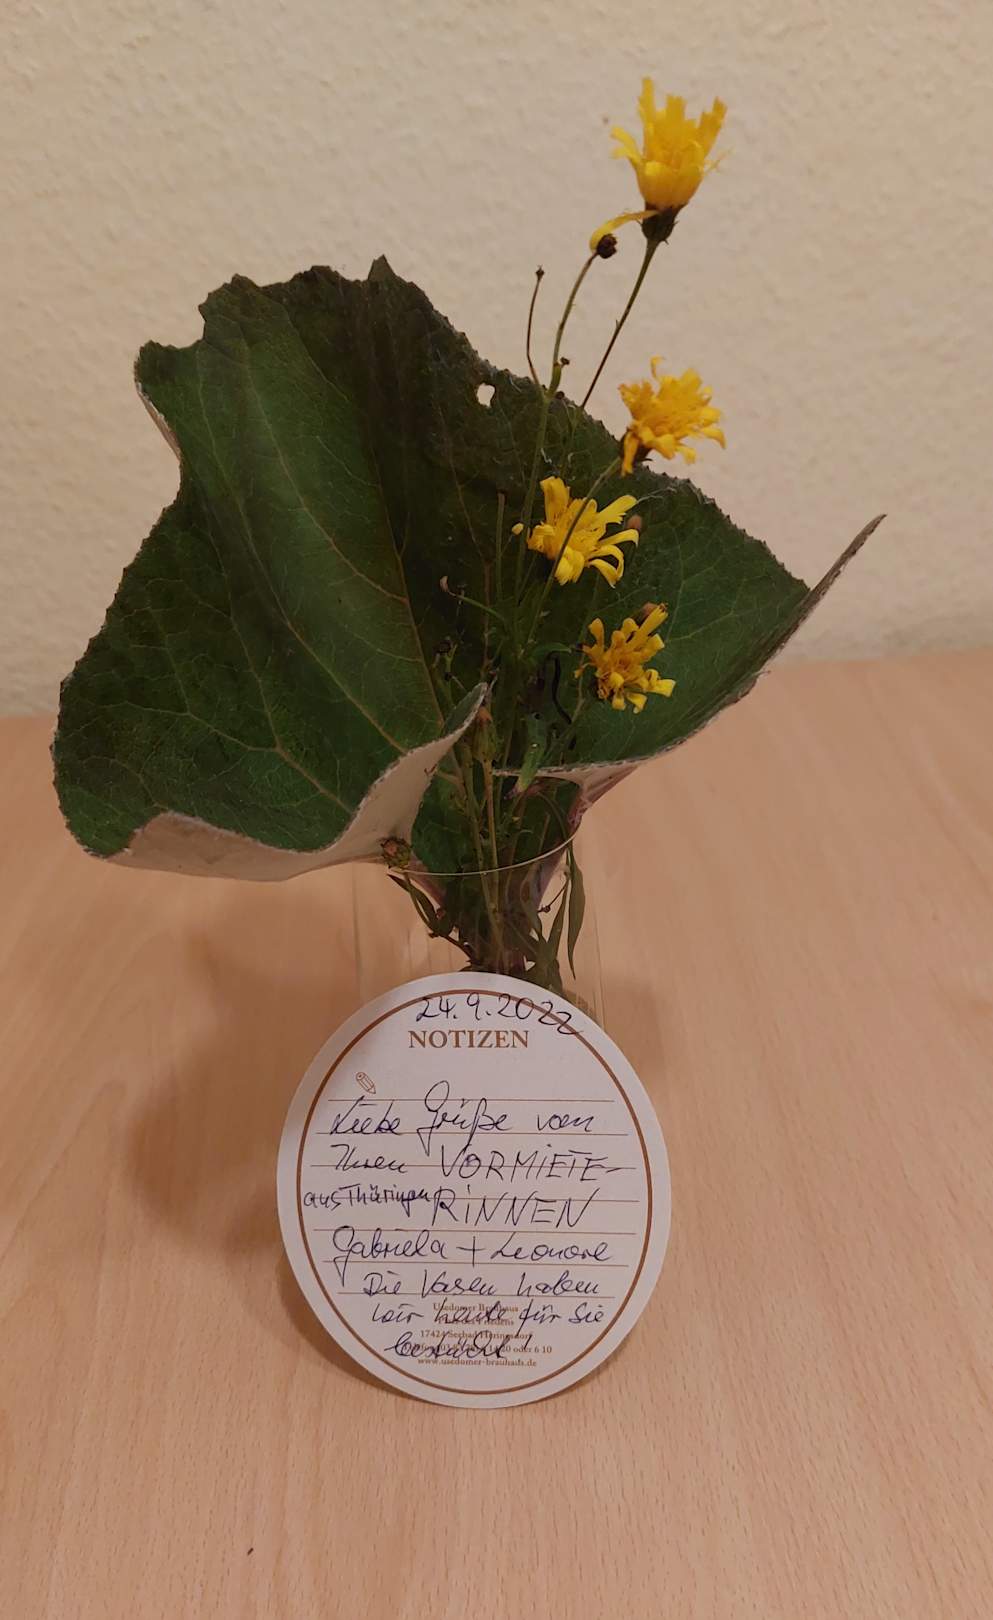 24.9.2022
NOTIZEN
Liebe Grüße von
Ihren VORMIETE-
aus Thüringen RINNEN
Gabriela + Leonore
Die Vasen haben
wir heute für Sie
bestückt!
Usedomer Brauhaus
17424 Seebad Heringsdorf
20 oder 6 10
www.usedomer-brauhaus.de